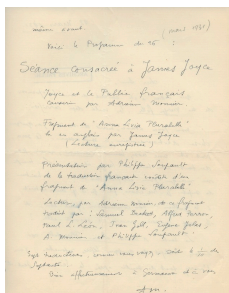 (mars 1931)
Voici le Programme du 26 :
Séance consacrée à James Joyce
Joyce et le Public français
causerie par Adrienne Monnier.
Fragment de "Anna Livia Plurabelle"
lu en anglais par James Joyce
(Lecture enregistrée)
Présentation par Philippe Soupault
de la traduction française inédite d'un
fragment de "Anna Livia Plurabelle".
Lecture par Adrienne Monnier de ce fragment
traduit par : Samuel Beckett, Alfred Perron,
Paul L. Léon, Ivan Goll, Eugène Jolas,
A. Monnier et Philippe Soupault.
A.M.